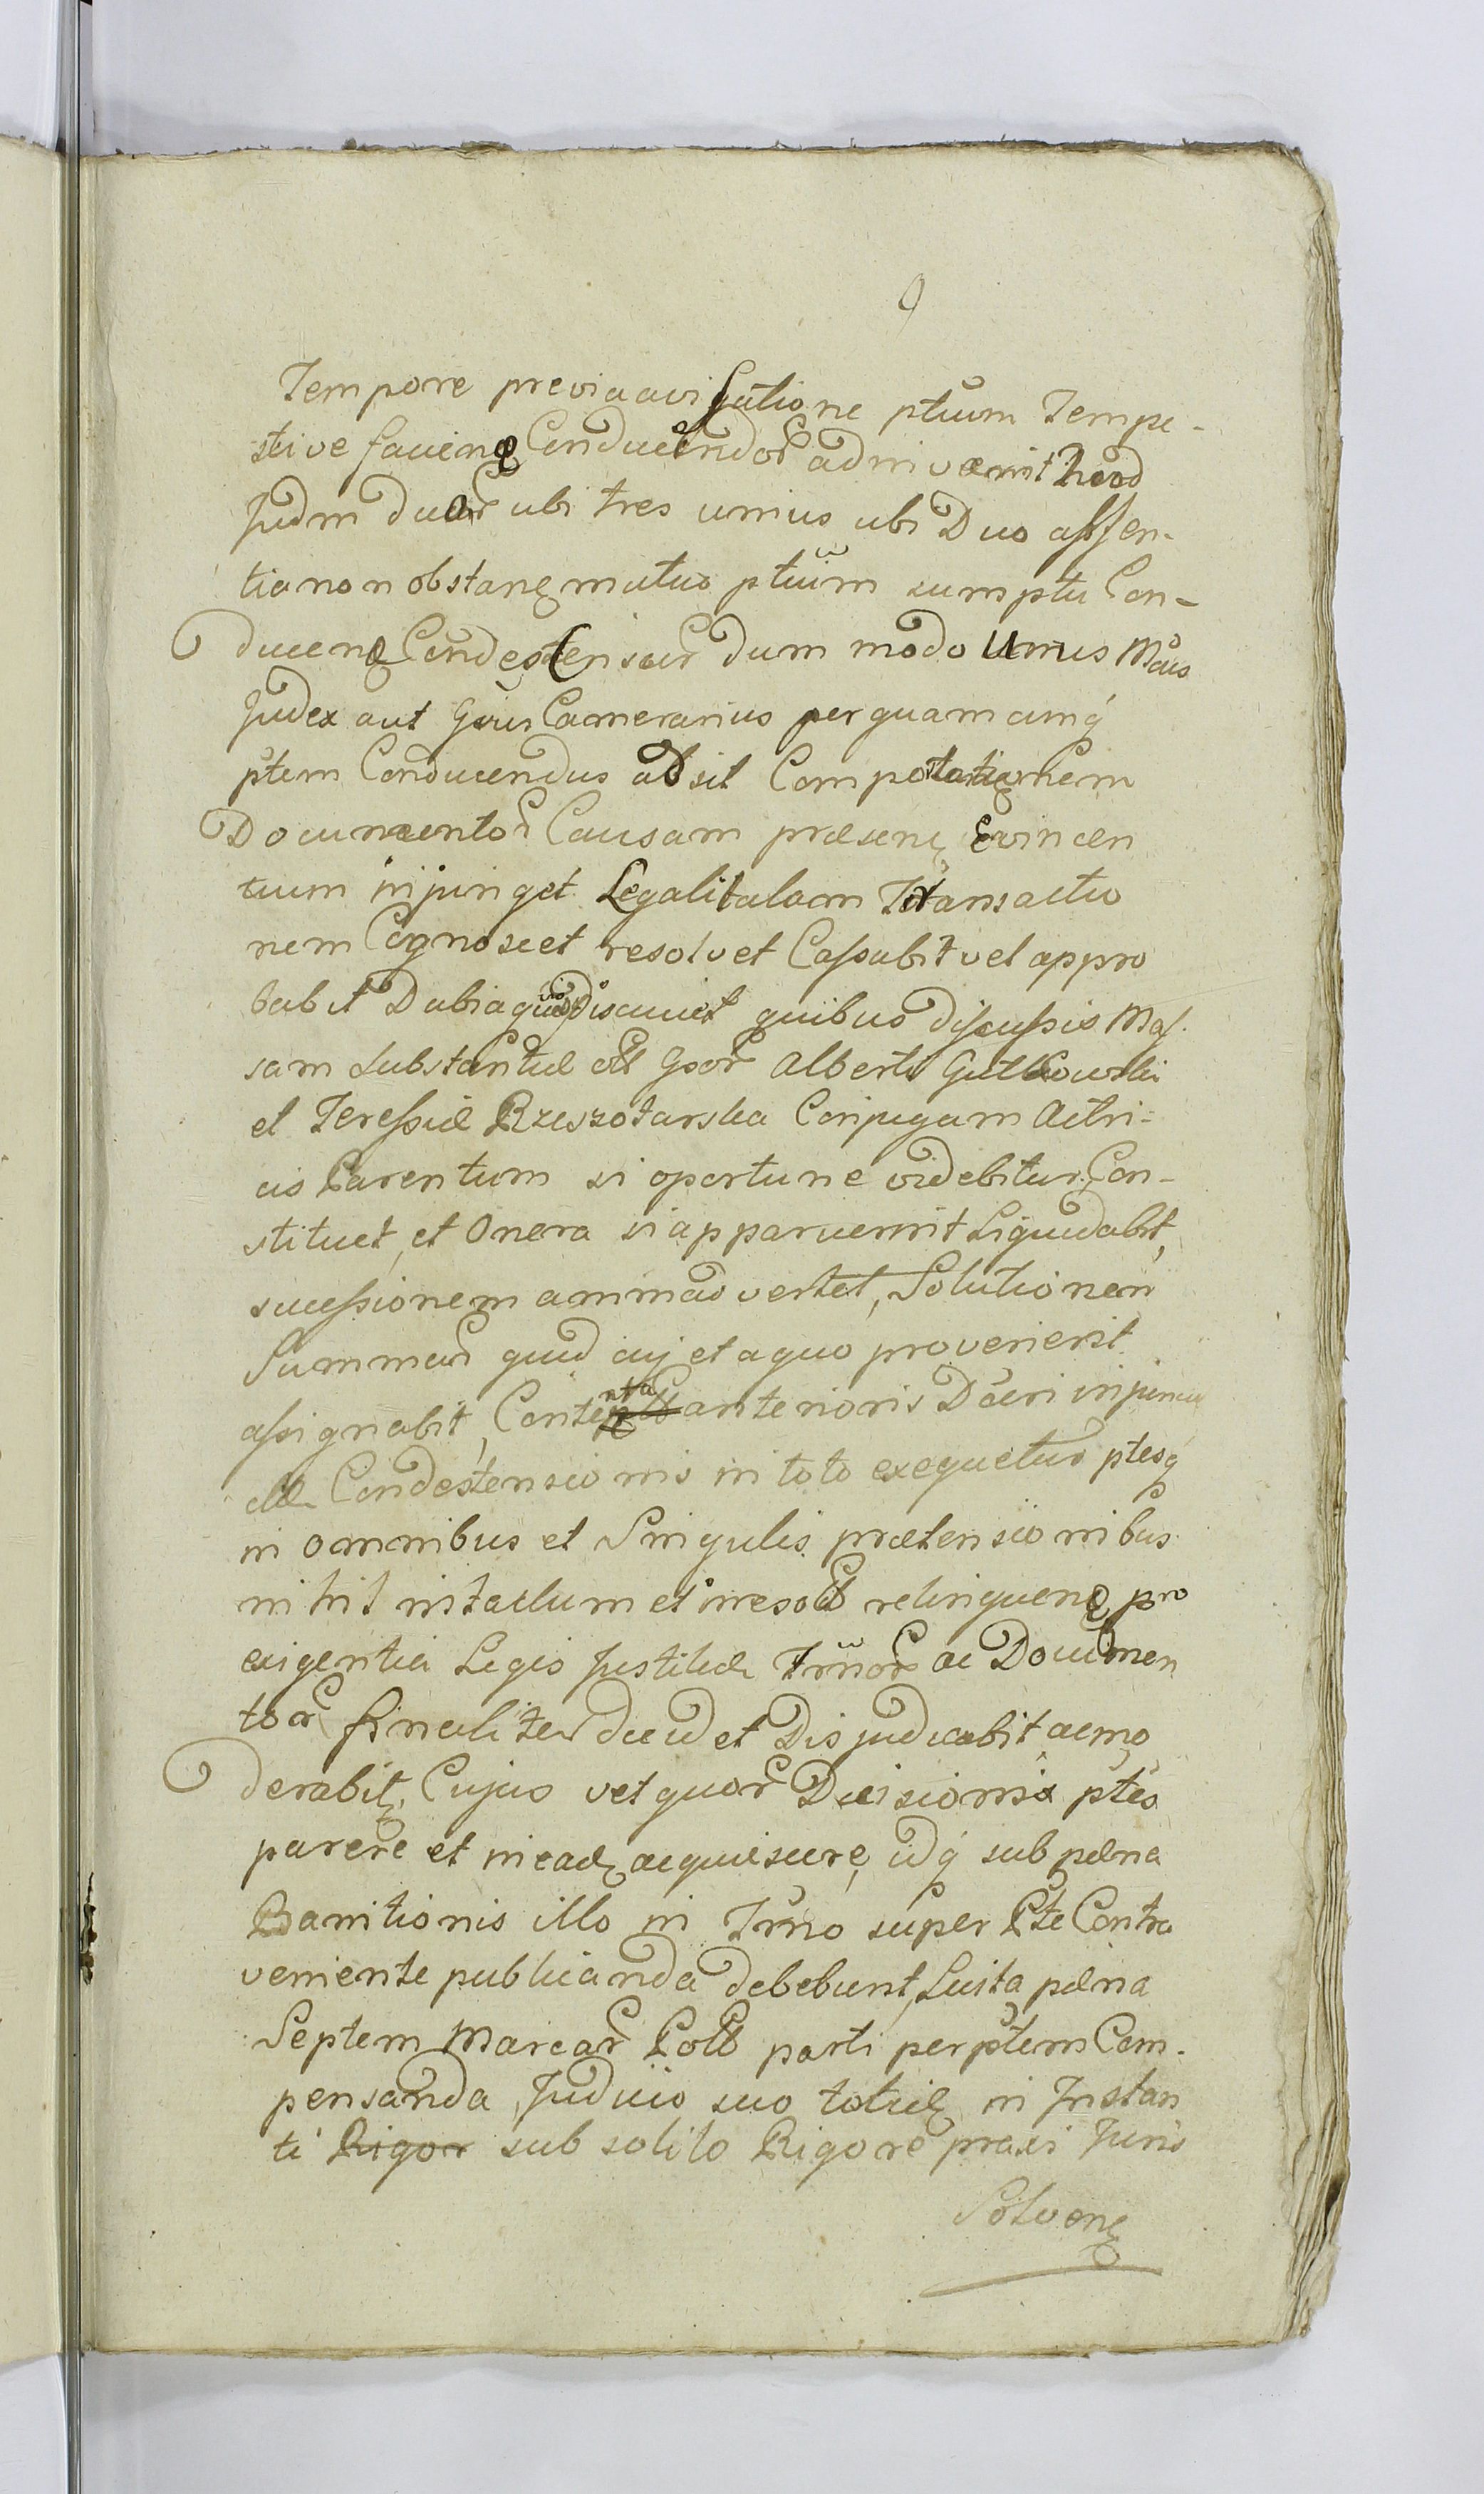 9
Tempore previa avisatione ptium Tempe-
stive faciend Conducendor adinvenit
Judm duor ubi tres unius ubi Duo absen-
tia non obstane mutuo ptium sumptu Con-
ducend Condescensur dum modo Unus
Judex aut Camerarius per quamcunq
ptem Conducendus adsit Comportationem
Documentor Causam præsene Evincen
tium injunget Legalitatam Transactio
nem Cognoscet resolvet Cassabit vel appro
babit Dubiaque discuciet quibus discussis Mas
sam Substantiæ Gsor Alberti Gutkowski
et Teressiæ Rzeszotarska Conjugum Actri-
cis Parentum si oportune videbitur Con-
stituet, et Onera si apparuerint Liquidabit,
sucessionem animadvertet, Solutionem
Summar quid cuj et a quo provenierit
assignabit, Contenta anterioris Decri
Condestensionis in toto exequetur ptesq
in omnibus et Singulis prætensionibus
nihil intactum et irresolt relinquend pro
exigentia Legis Justitiæ Trnor ac Documen
tor finaliter decidet Disjudicabit acmo
derabit, Cujus vel quor Decisionis ptes
parere et in ead acquiescere, idq sub pœna
Banitionis illo in Trno super Pte Contra
veniente publicanda debebunt, Luita pœna
Septem Marcar Poll parti per ptem Com-
pensanda, Judicio suo totid in Instan
ti Rigor sub solito Rigore praxi Juris
Solvend